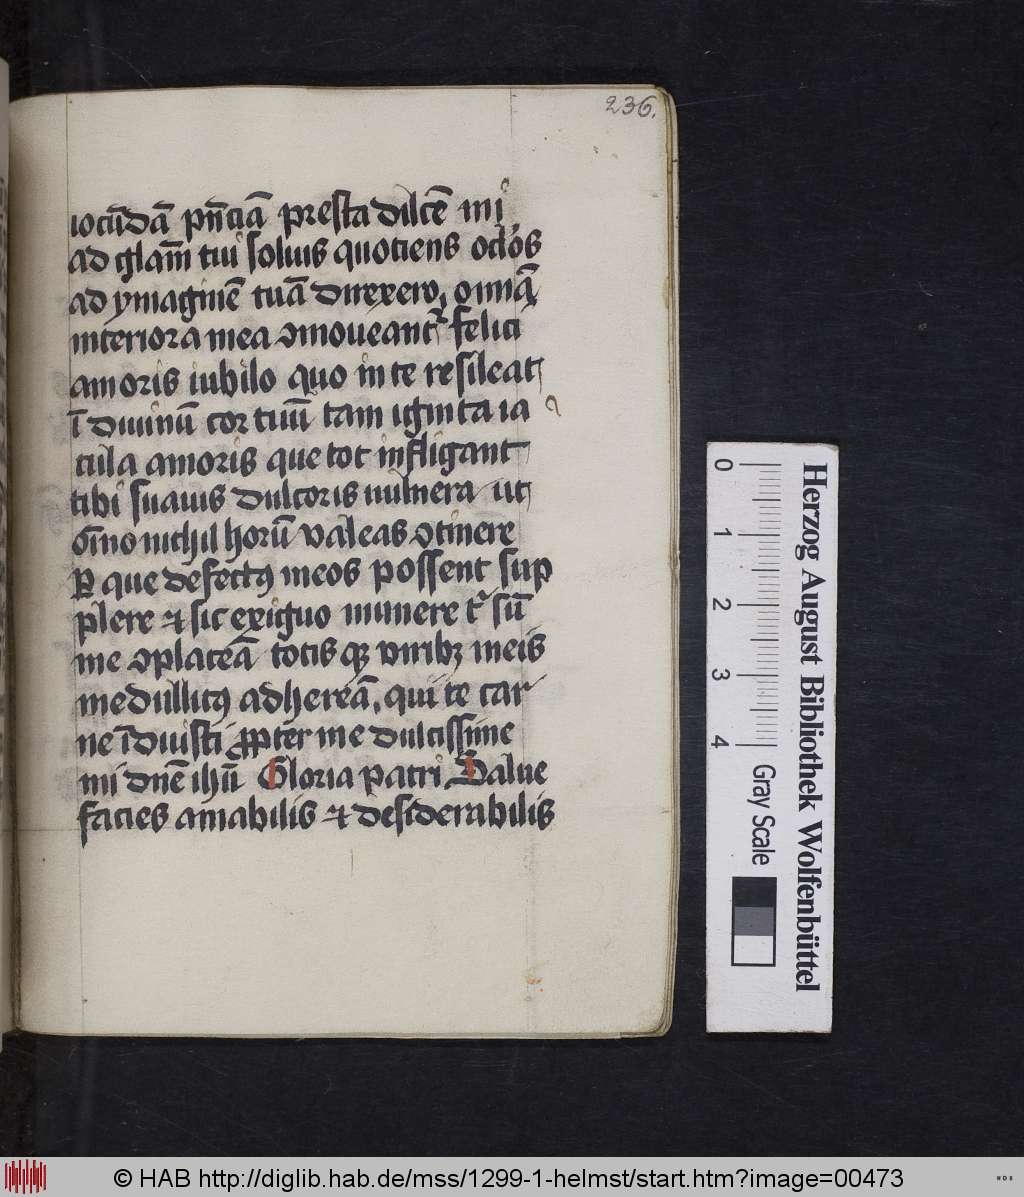 236.
iocūdā pn̄ciā presta dilcē mi
ad glam̄ tui soluis quotiens oclōs
ad ymaginē tuā direxero, omīa
interiora mea ꝯmoueant᷑ felici
amoris iubilo quo in te resileat
ī diuinū cor tuū tam ignita ia
cula amoris que tot infligant
tibi suauis dulcoris uulnera ut
oīno nichil horū valeas ꝯtinere
que defectꝰ meos possent sup
plere ⁊ sic exiguo munere t᷑ sū
me ꝯplaceā totisqꝫ viribꝫ meis
medullitꝰ adhereā, qui te car
ne īduisti ꝓpter me dulcissime
mi dn̄e ihū Gloria patri Salue
facies amabilis ⁊ desiderabilis
0 1 2 3 4
Gray Scale
Herzog August Bibliothek Wolfenbüttel
© HAB http://diglib.hab.de/mss/1299-1-helmst/start.htm?image=00473